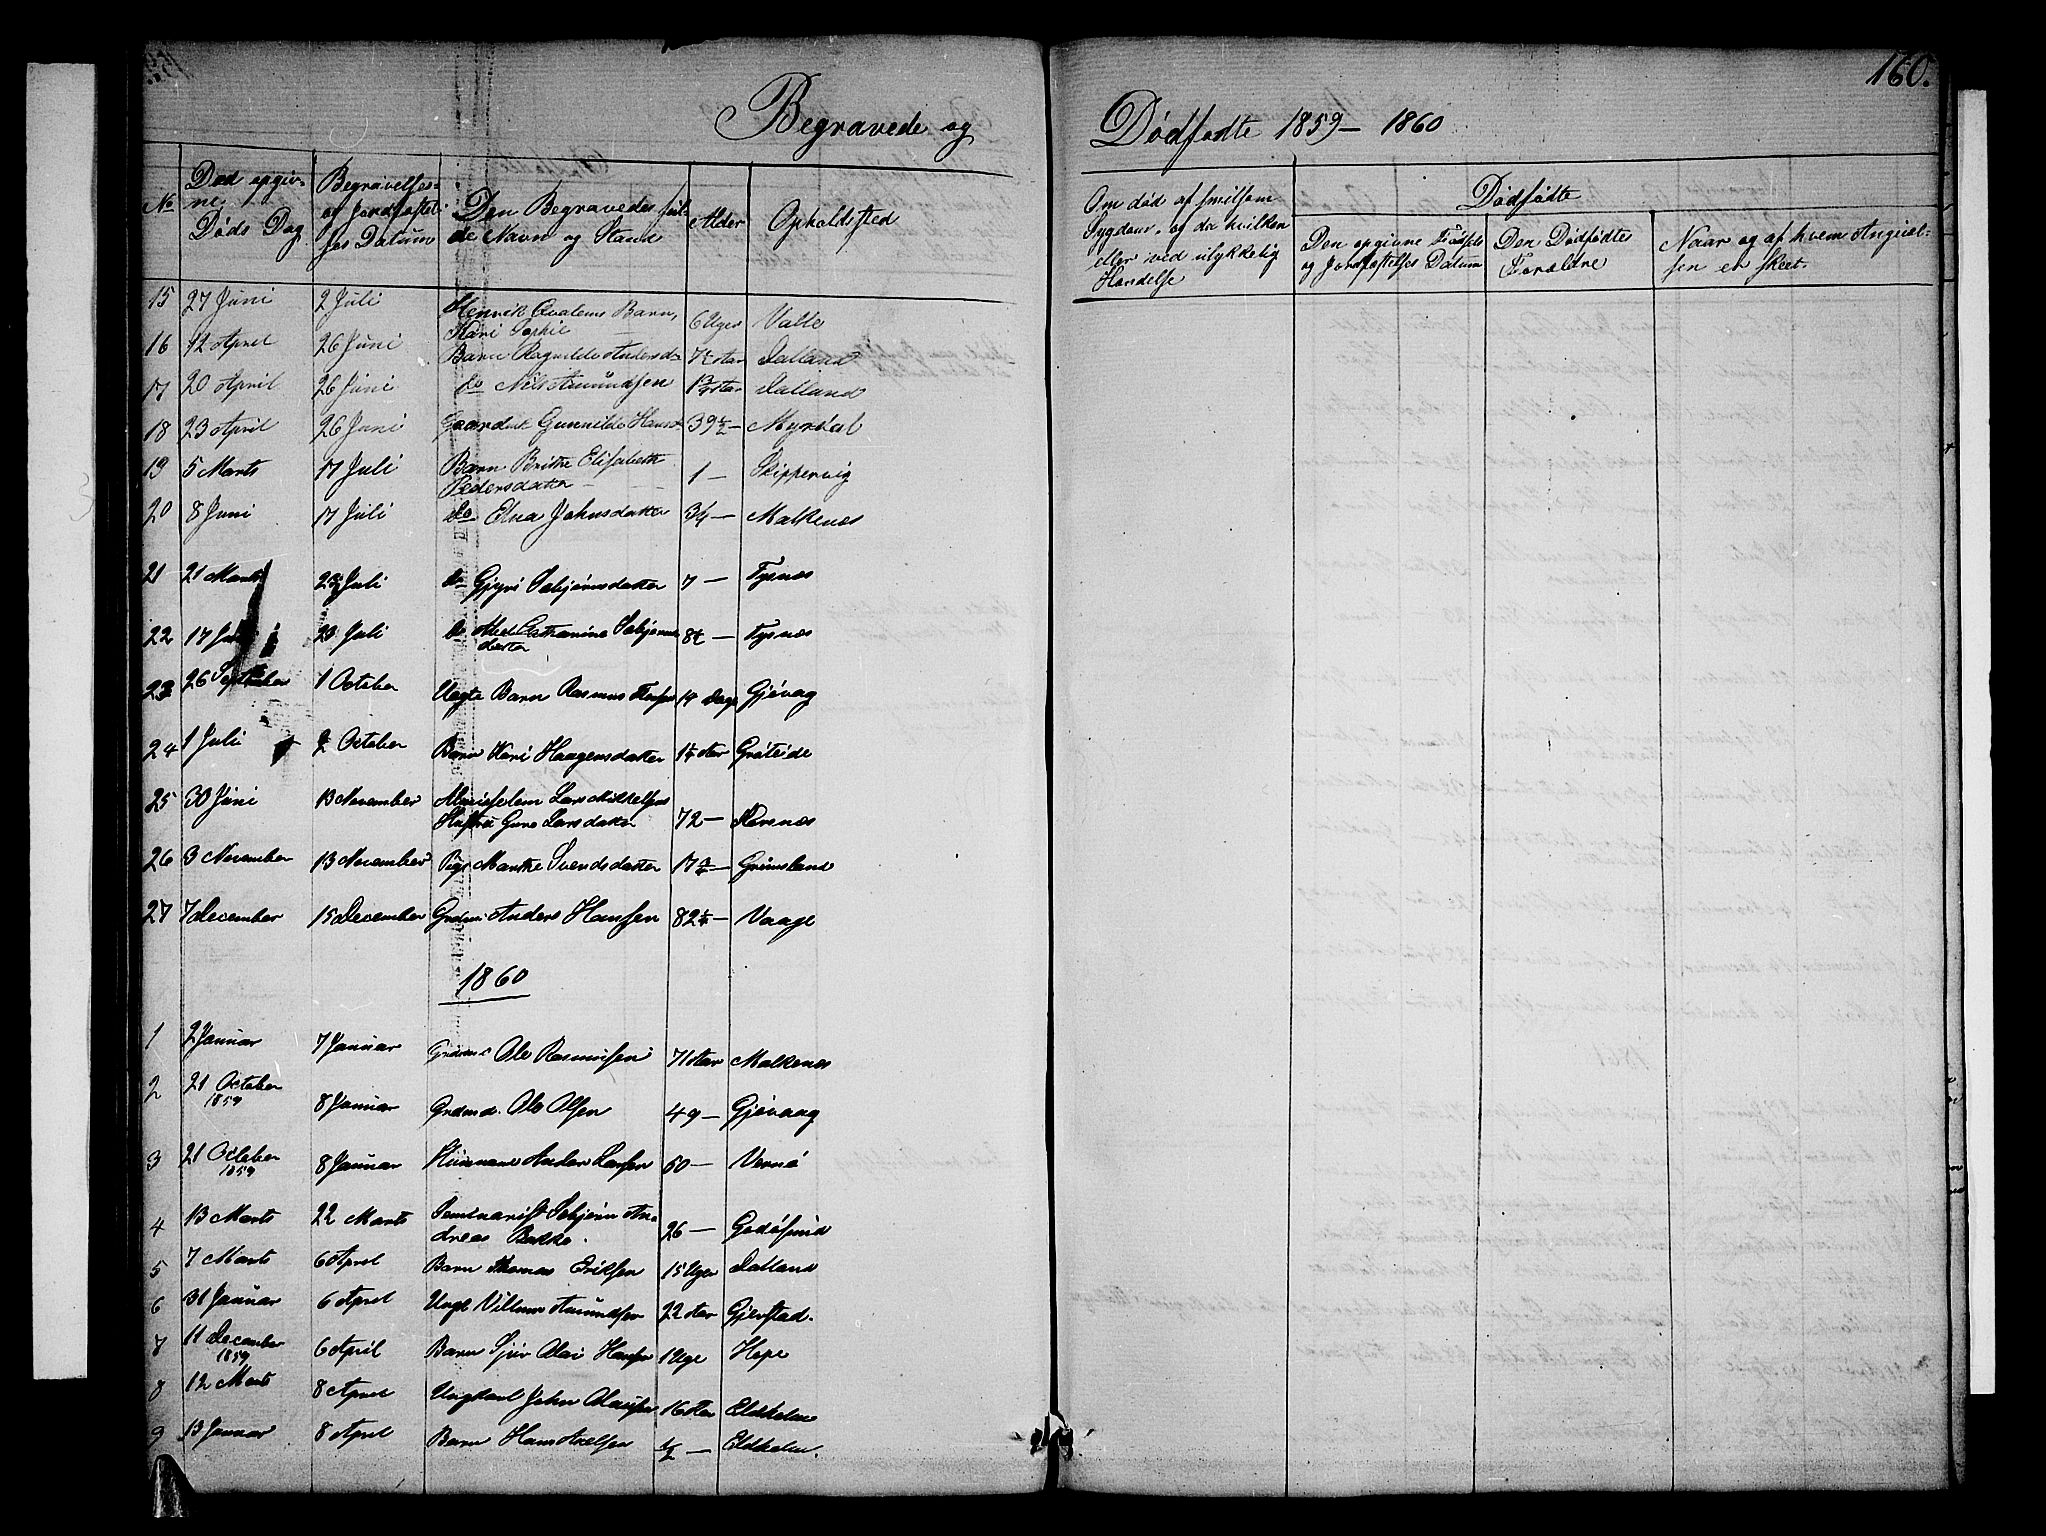 160.
Begravede og Dødfødte 1859 – 1860
No
Den opgiv-
ne
Døds Dag
Begravelses-
og Jordfæstel-
ses Datum
Den Begravedes ful-
de Navn og Stand
Alder
Opholdsted
Om død af smitsom
Sygdom, og da hvilken
eller ved ulykkelig
Hændelse
Dødfødte
Den opgivne Fødsels
og Jordfæstelses Datum
Den Dødfødtes
Forældre
Naar og af hvem Angivel-
sen er skeet.
15 27 Juni 2 Juli Henrik Qvalems Barn,
Kari Sophie 6 Uger Valle
16 12 April 26 Juni Barn Ragnilde Andersd. 7 1/4 Aar Dalland
17 20 April 26 Juni do Nils Amundsen 1 3/4 Aar Dalland
18 23 April 26 Juni Gaardm. Gunnilde Hansd. 39 1/2 — Myrdal
19 5 Marts 17 Juli Barn Brithe Elisabeth
Pedersdatter 1 — Skippervig
20 8 Juni 17 Juli do Elna Johnsdatter 3/4 — Malkenes
21 21 Marts 23 Juli do Gjyri Sebjørnsdatter 7 — Tysnes
22 17 Juli 20 Juli do Ale Cathrarina Sebjørns-
datter 8 1/4 — Tysnes
23 26 September 1 October Uægte Barn Rasmus 14 Dage Gjøvaag
24 1 Juli 2 October Barn Kari Haagensdatter 1 1/4 Aar Gröteide
25 30 Juni 13 November Lars Mikkelsens
Hustru Guro Larsdatter 72 — Flornes
26 3 November 13 November Pige Marthe Svendsdatter 17 3/4 — Grimsland
27 7 December 15 December Grdm. Anders Hansen 82 1/4 — Vaage
1860
1 2 Januar 7 Januar Grdm. Ole Rasmusen 71 Aar Malkenes
2 21 October
1859 8 Januar Grdmd. Ole Olsen 49 — Gjøvaag
3 21 October
1859 8 Januar Huusmand Anders Larsen 60 — Vernø
4 13 Marts 22 Marts Seminarist Sebjørn An-
dreas Bakke. 26 — Godøsund
5 7 Marts 6 April Barn Thomas Eriksen 15 Uger Dalland
6 31 Januar 6 April Ungk. Villum Amundsen 22 Aar Gjerstad.
7 11 December
1859 6 April Barn Sjur Olai Hansen 1 Uge Hope
8 12 Marts 8 April Ungkarl John Olaisen 16 Aar Eldholm
9 13 Januar 8 April Barn Hans Axelsen 1/2 — Eldholm.